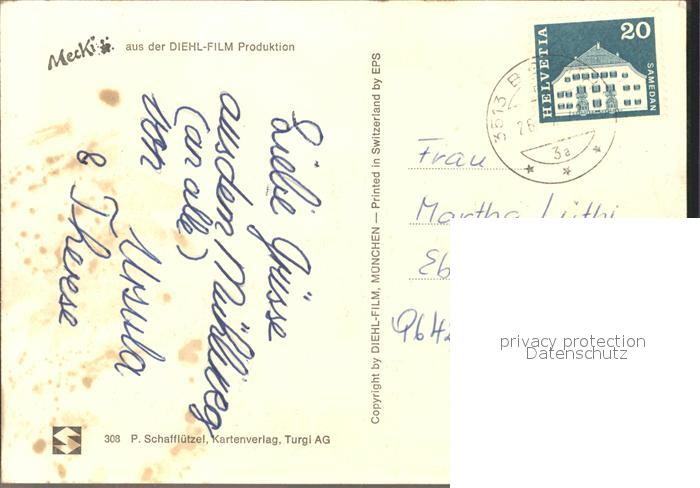 Mecki
aus der DIEHL-FILM Produktion
Liebi Grüsse
aus dem Mühliweg
(an alle)
von
Ursula
& Therese
308 P. Schafflützel, Kartenverlag, Turgi AG
Copyright by DIEHL-FILM, MÜNCHEN — Printed in Switzerland by EPS
HELVETIA
20
SAMEDAN
3513 B
26.
3a
Frau
Martha Lüthi
Eb
9642
privacy protection
Datenschutz